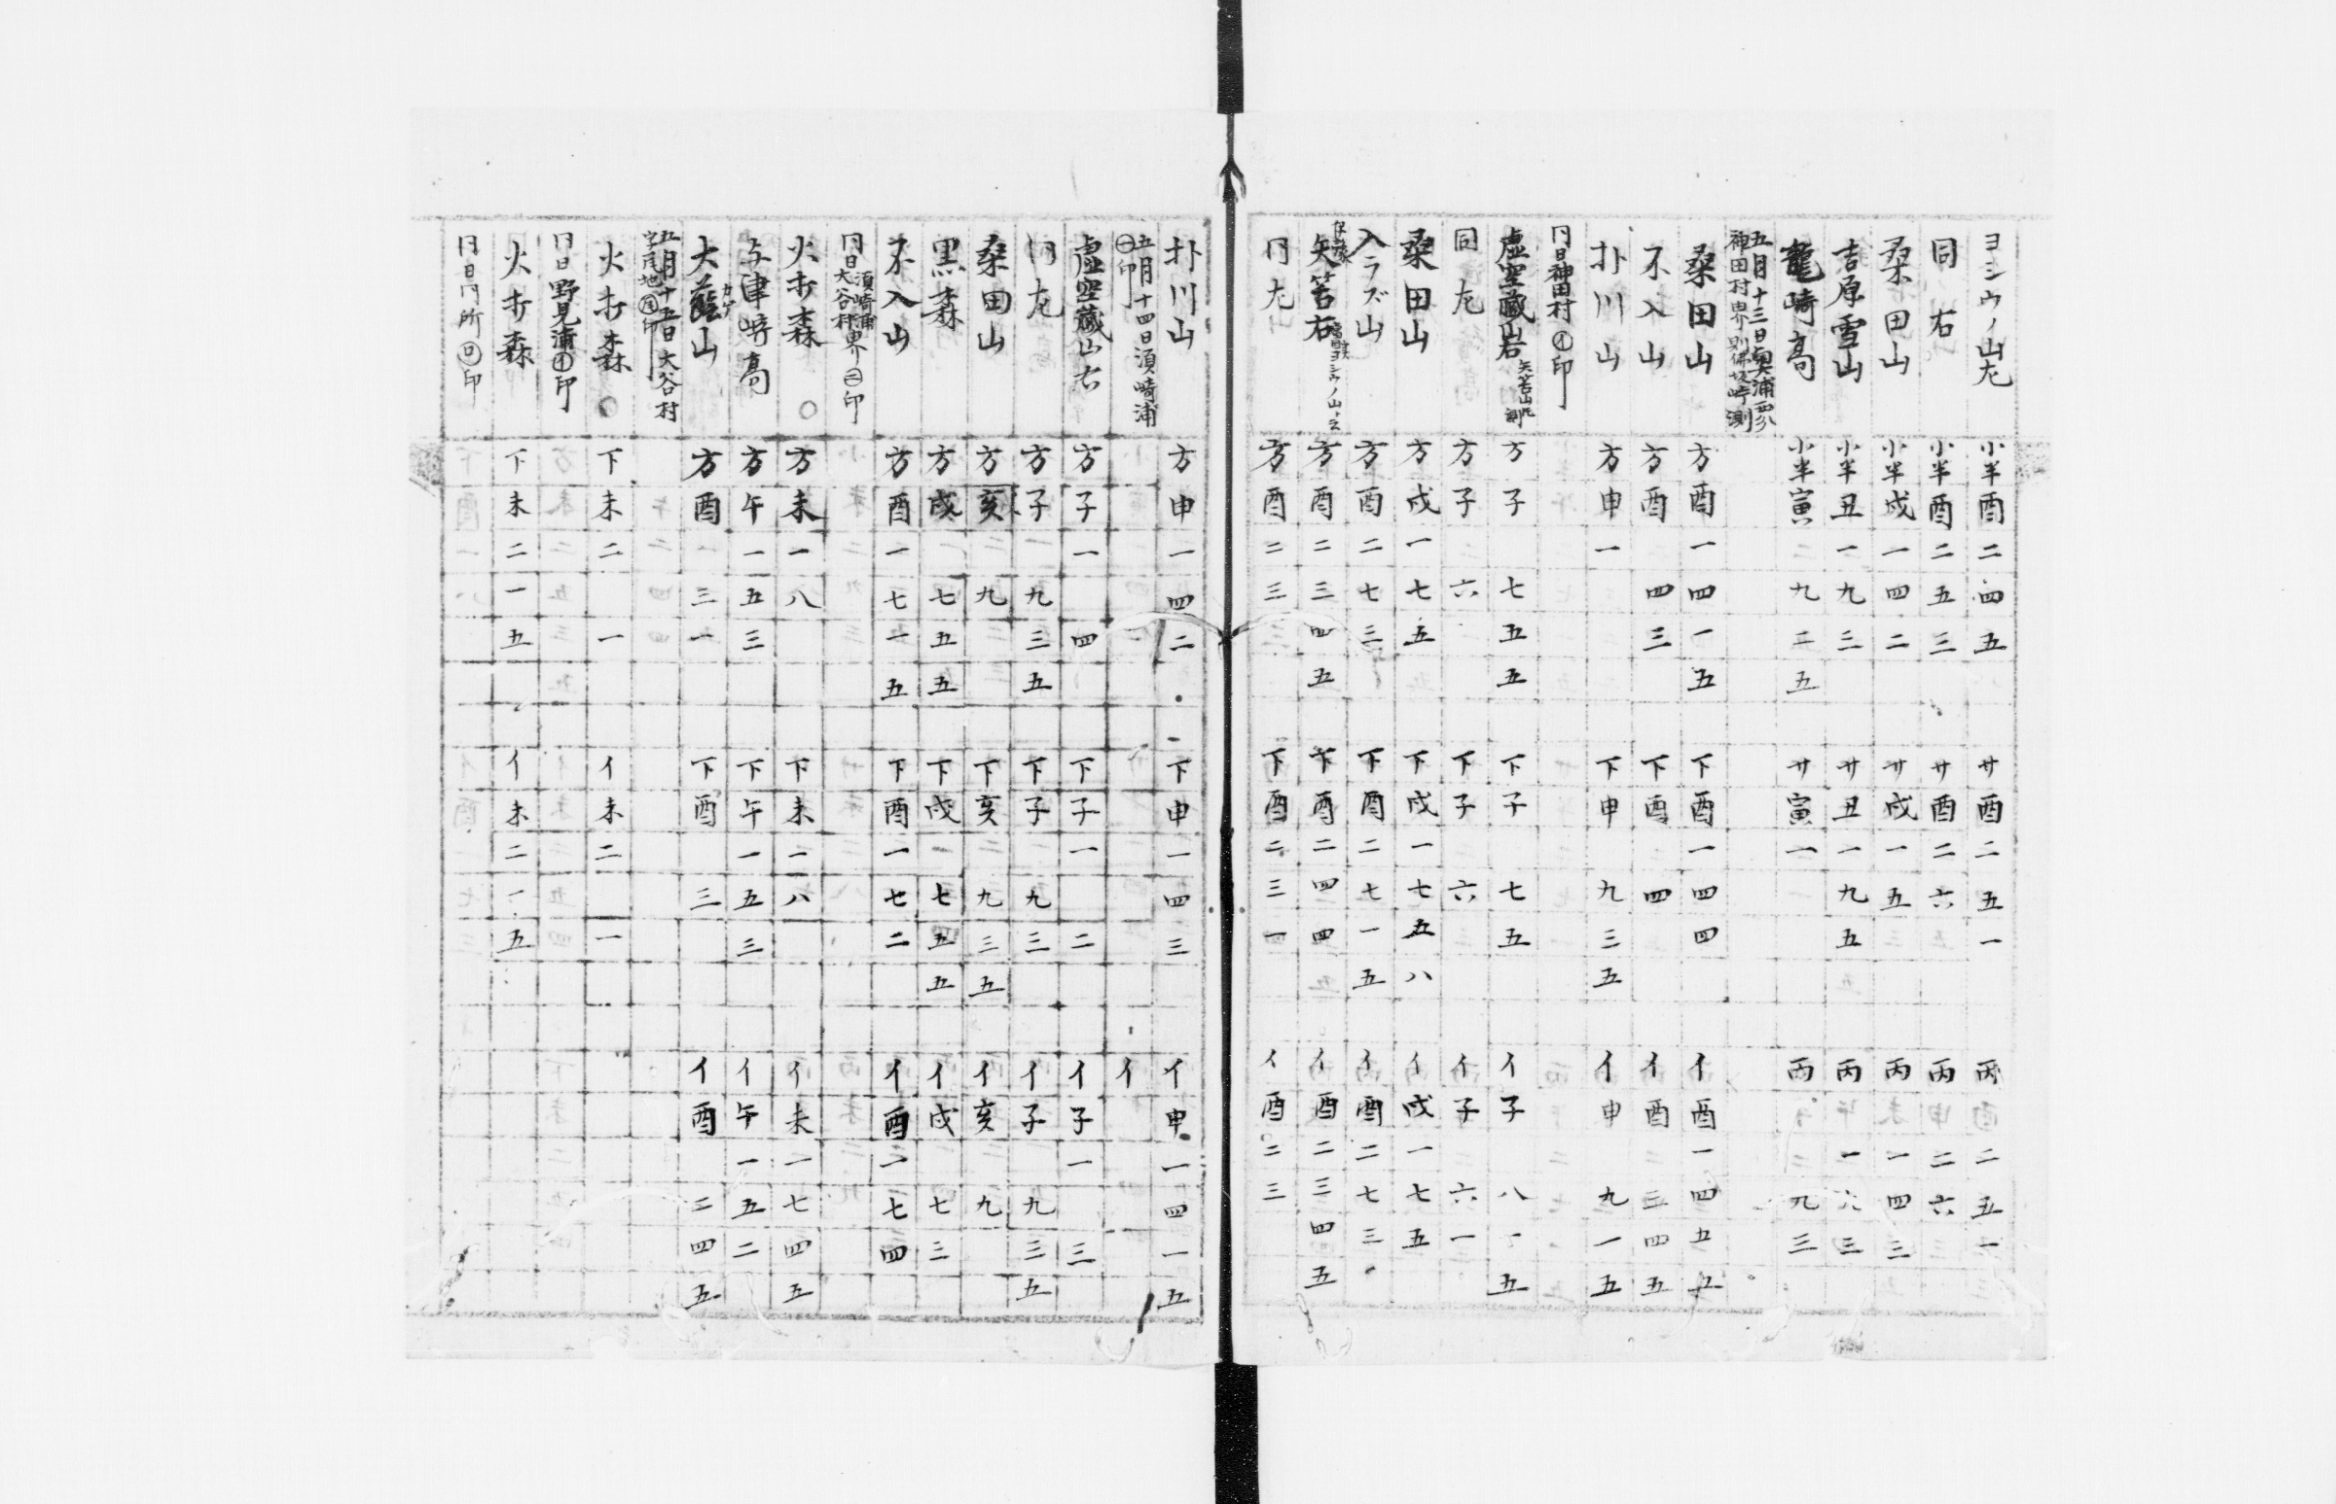 ヨシウノ山左 小半酉二四五 サ酉二五一 丙 二五一
同右 小半酉二五三 サ酉二六 丙 二六
桑田山 小半戌一四二 サ戌一五 丙 一四三
吉原雪山 小半丑一九三 サ丑一九五 丙 一六三
龍崎高 小半寅 九二五 サ寅一 丙 九三
五月十三日奥浦
神田村界 測
桑田山 方酉一四一五 下酉一四四 イ酉一四五五
不入山 方酉 四三 下酉 四 イ酉 三四五
扑川山 方申一 下申 九三五 イ申 九一五
同日神田村㋑印
虚空蔵山岩 方子 七五五 下子 七五 イ子 八一五
同左 方子 六 下子 六 イ子 六一
桑田山 方戌一七五 下戌一七五八 イ戌一七五
入ラズ山 方酉二七三 下酉二七一五 イ酉二七三
矢筈右 方酉二三四五 下酉二四四 イ酉二三四五
同左 方酉二三 下酉二三一 イ酉二三
扑川山 方申一四二 下申一四三 イ申一四一五
五月十四日須崎浦
㊀印 イ
虚空蔵山右 方子一 四 下子一 二 イ子一 三
同左 方子 九三五 下子 九三 イ子 九三五
桑田山 方亥 九 下亥 九三五 イ亥 九
黒森 方戌 七五五 下戌 七五五 イ戌 七三
不入山 方酉一七一五 下酉一七二 イ酉一七四
同日須崎浦
大谷村界㊁印
火打森 方未一八 下未一八 イ未一七四五
与津崎高 方午一五三 下午一五三 イ午一五二
大蔭山 カゲ 方酉 三一 下酉 三 イ酉 二四五
五月十五日大谷村
火打森 下未二 一 イ未二 一
同日野見浦㊉印
火打森 下未二一五 イ未二一五
同日同所㋺印